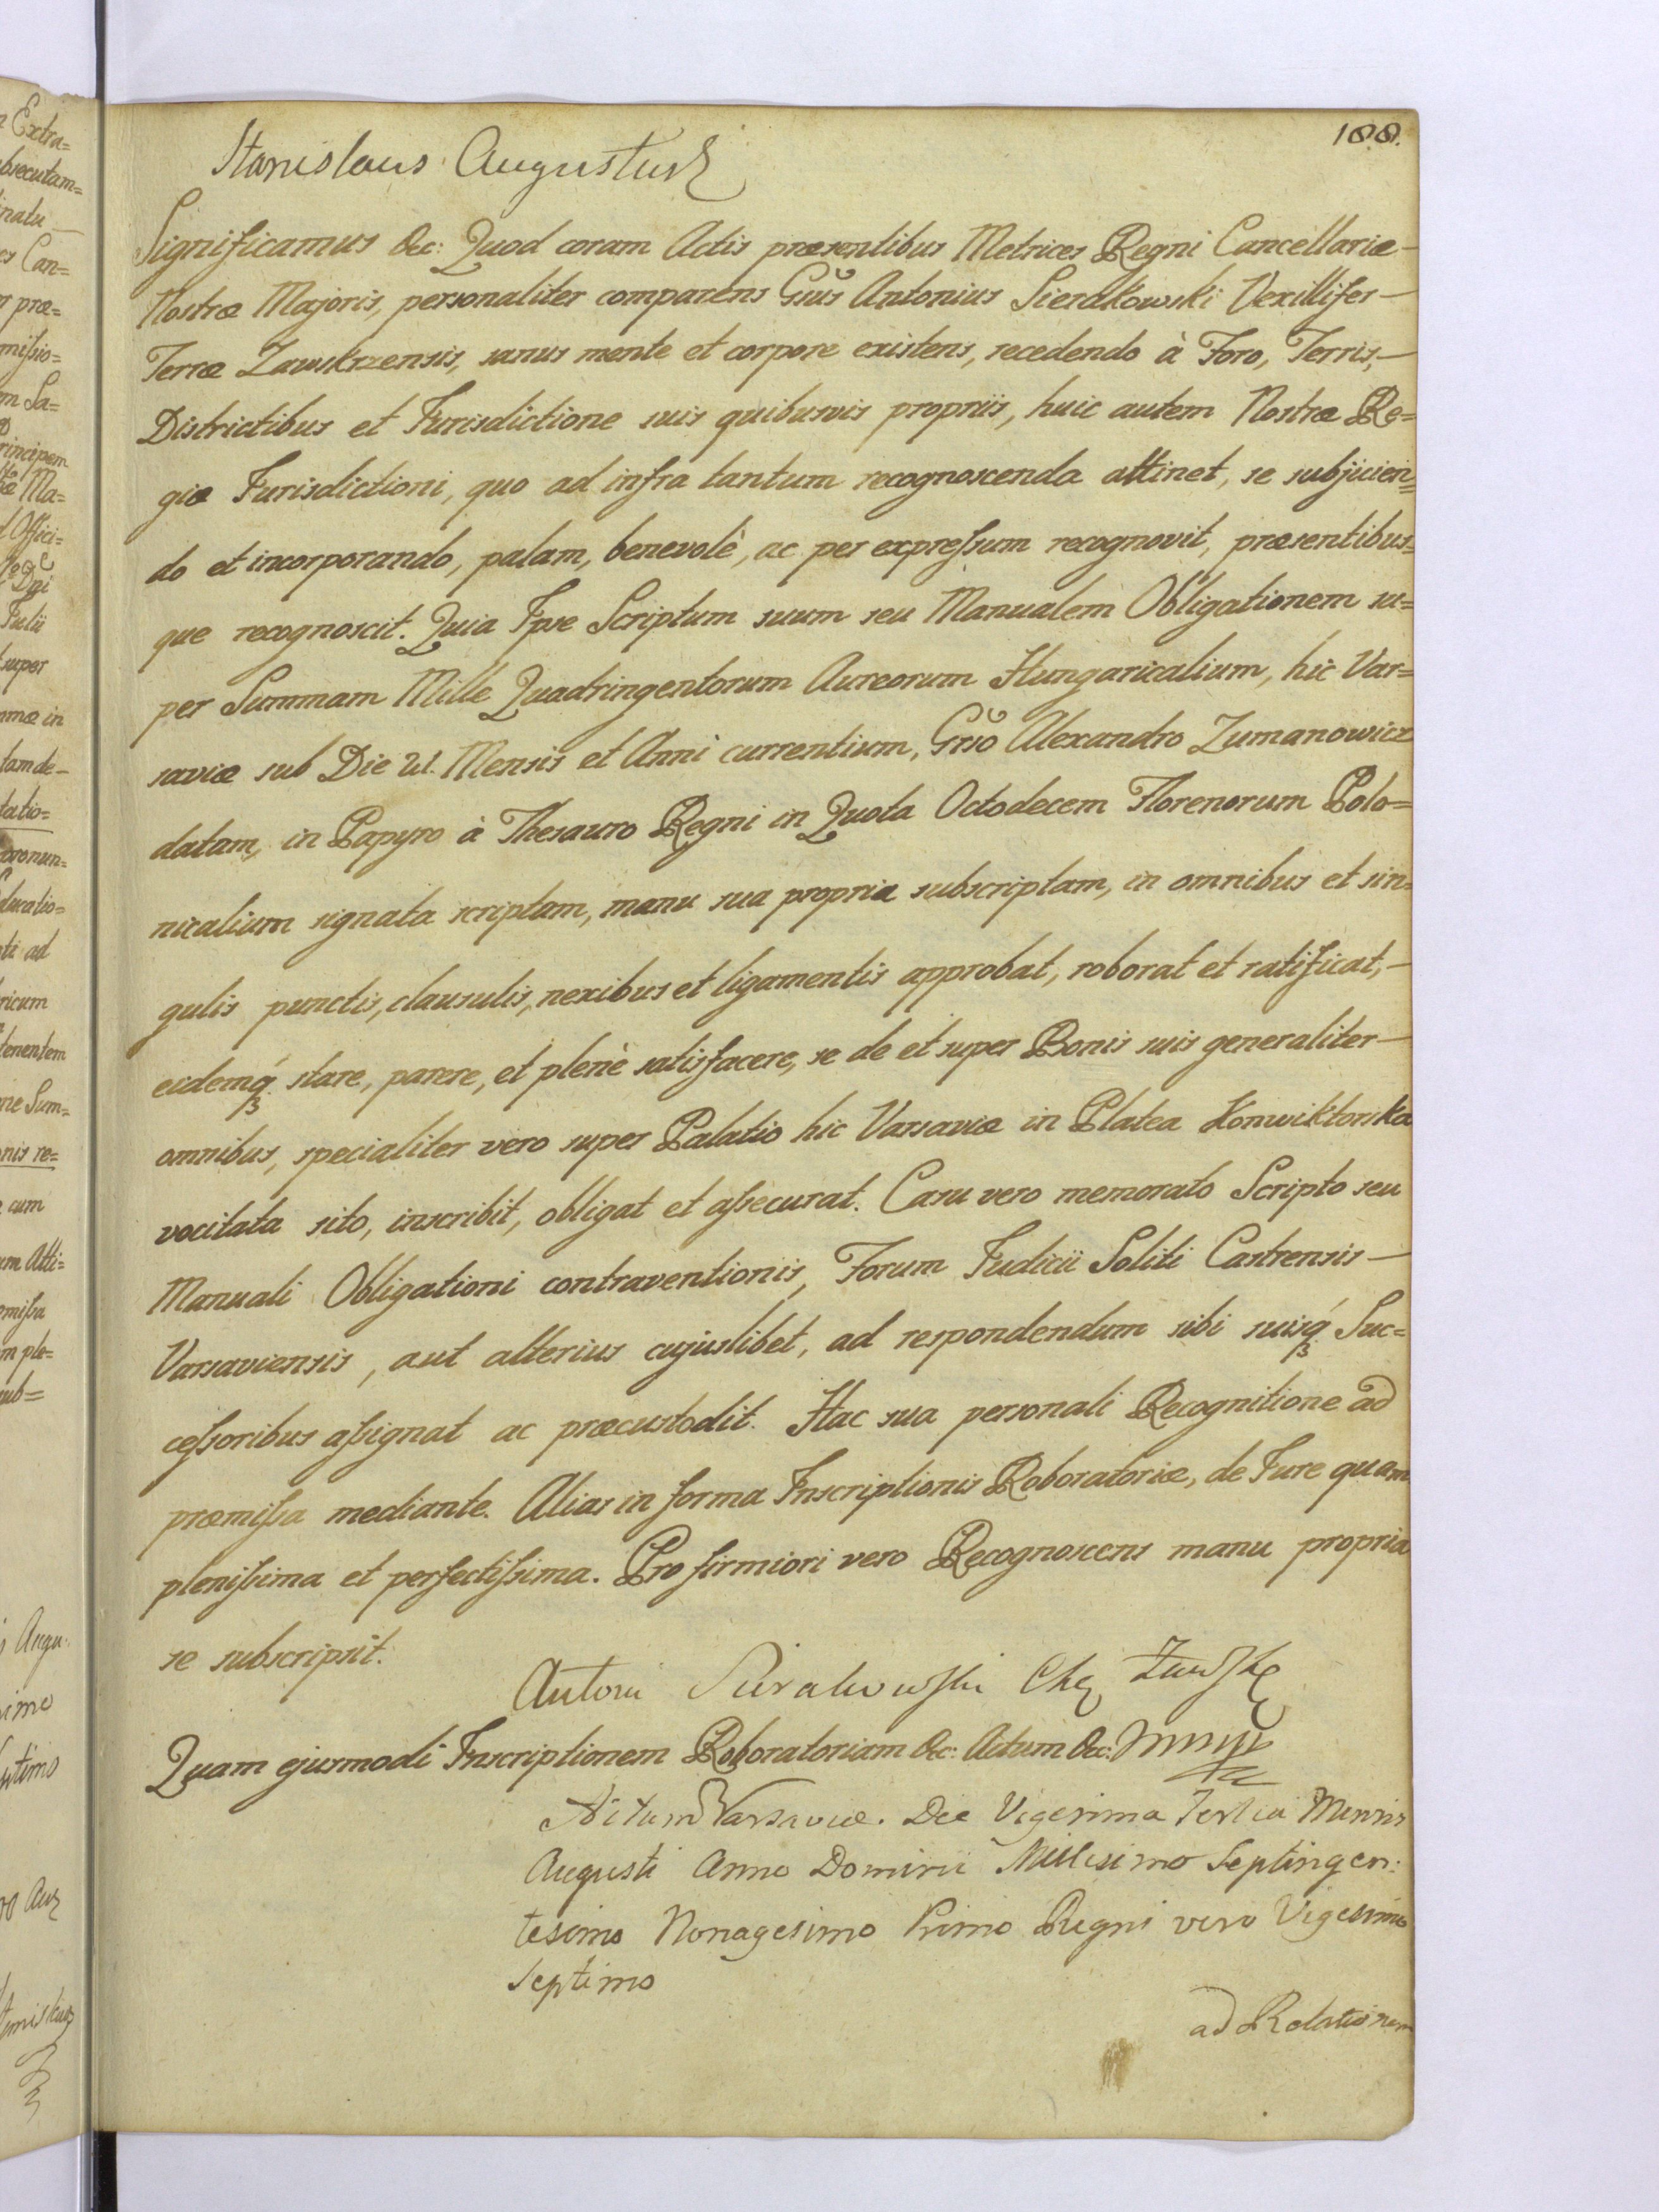 188.
Stanislaus Augustus
Significamus &c: Quod coram Actis præsentibus Metrices Regni Cancellariæ—
Nostræ Majoris, personaliter comparens Gsus Antonius Sierakowski Vexillifer—
Terræ Zawskrzensis, sanus mente et corpore existens, recedendo à Foro, Terris,—
Districtibus et Jurisdictione suis quibusvis propriis, huic autem Nostræ Re=
giæ Jurisdictioni, quo ad infra tantum recognoscenda attinet, se subjicien=
do et incorporando, palam, benevolè, ac per expreſsum recognovit, præsentibus=
que recognoscit. Quia Ipse Scriptum suum seu Manualem Obligationem su=
per Summam Mille Quadringentorum Aureorum Hungaricalium, hic Var=
saviæ sub Die 21. Mensis et Anni currentium, Grso Alexandro Zumanowicz
datam, in Papyro à Thesauro Regni in Quota Octodecem Florenorum Polo=
nicalium signata scriptam, manu sua propria subscriptam, in omnibus et sin=
gulis punctis, clausulis, nexibus et ligamentis approbat, roborat et ratificat,—
eidemqȝ stare, parere, et plenè satisfacere, se de et super Bonis suis generaliter—
omnibus, specialiter vero super Palatio hic Varsaviæ in Platea Konwiktorska
vocitata sito, inscribit, obligat et aſsecurat. Casu vero memorato Scripto seu
Manuali Obligationi contraventionis, Forum Judicii Soliti Castrensis—
Varsaviensis, aut alterius cujuslibet, ad respondendum sibi suisqȝ Suc=
ceſsoribus aſsignat ac præcustodit. Hac sua personali Recognitione ad
præmiſsa mediante. Alias in forma Inscriptionis Roboratoriæ, de Jure quam
pleniſsima et perfectiſsima. Pro firmiori vero Recognoscens manu propria
se subscripsit.
Antoni Sierakowski Chą Zawskę
Quam ejusmodi Inscriptionem Roboratoriam &c: Actum &c:
Actum Varsaviæ. Die Vigesima Tertia Mensis
Augusti Anno Domini Millesimo Septingen:
tesimo Nonagesimo Primo Regni vero Vigesimo
Septimo
ad Relationem